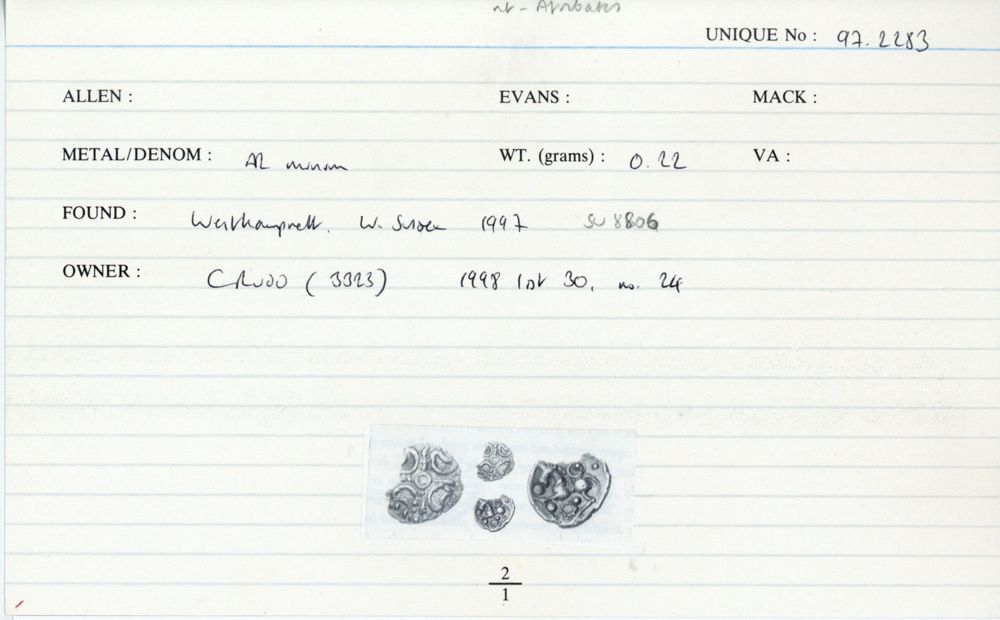 Atrebates
UNIQUE No : 97.2283
ALLEN : EVANS : MACK :
METAL/DENOM : AR minim WT. (grams) : 0.22 VA :
FOUND : Westhampnett. W. Sussex 1997 SU 8806
OWNER : CRUDD (3323) 1998 list 30, no. 24
2
1